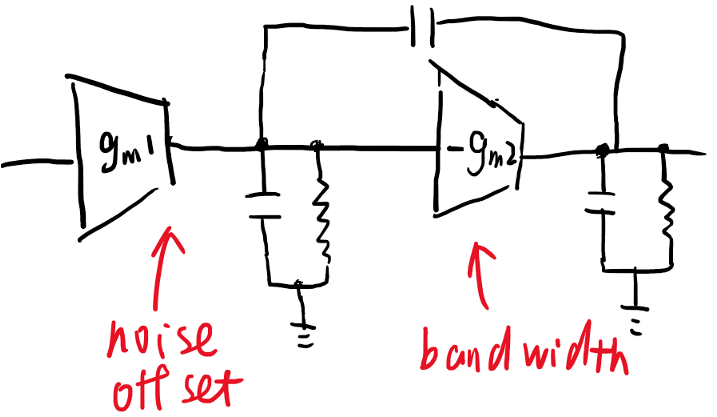 gm1
-gm2
noise
offset
bandwidth